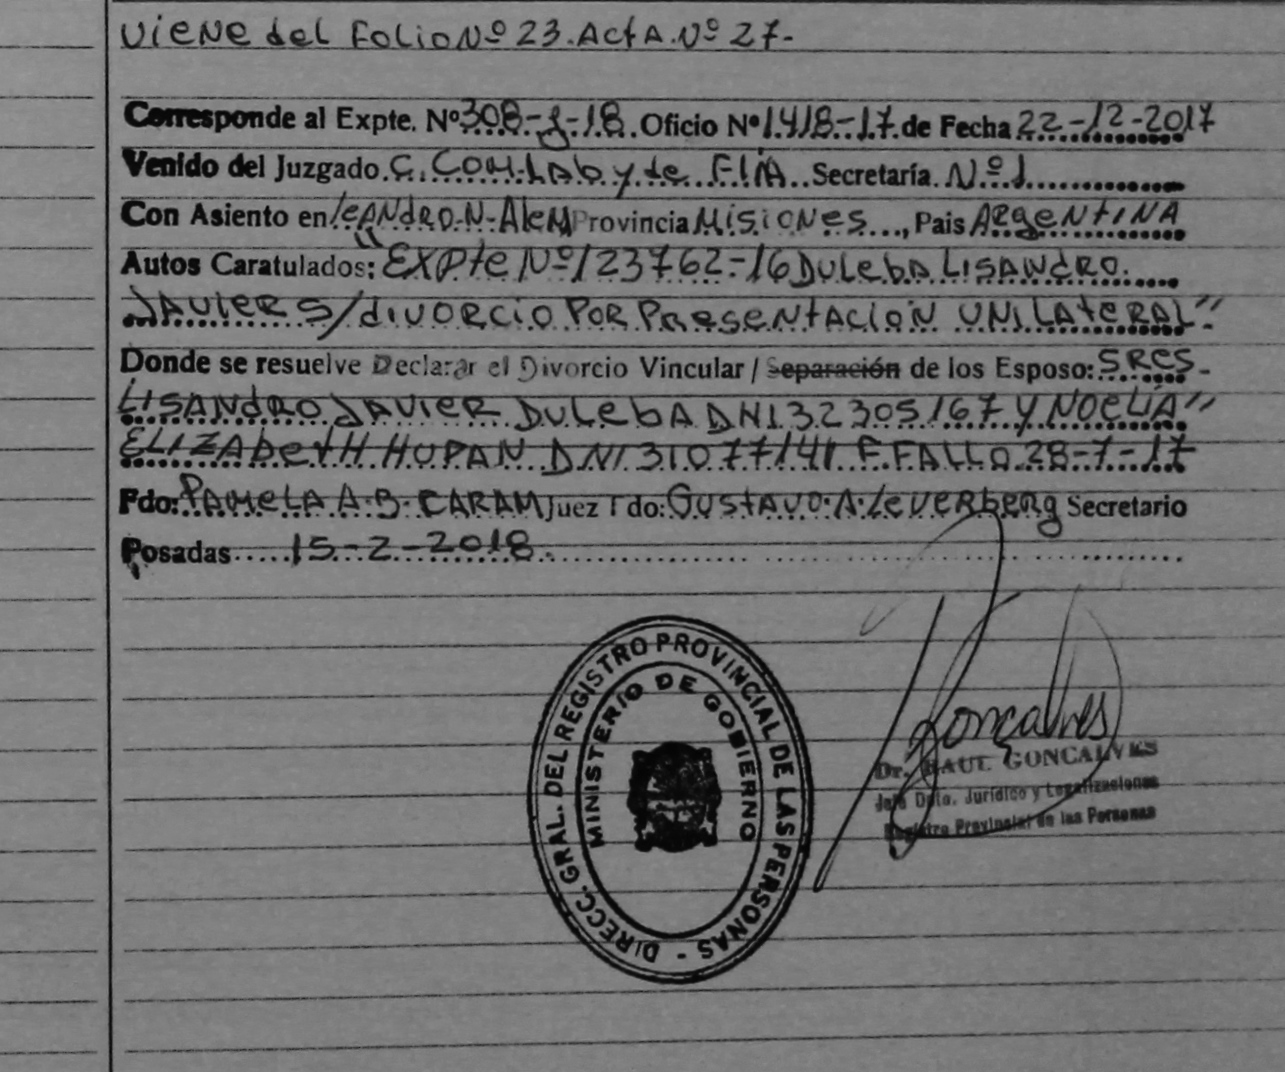 Viene del Folio Nº 23. Acta. Nº 27.-
Corresponde al Expte. Nº 308-J-18. Oficio Nº 1418-17 de Fecha 22-12-2017
Venido del Juzgado C. COM. LAb y de FLIA. Secretaría Nº 1
Con Asiento en LeANdRO N. AleM Provincia MISIONES, Pais ARgeNtINA
Autos Caratulados: "EXPte Nº 123762-16 DULEBA LISANdRO
JAVIER S/dIVORCIO POR PResentACION UNILAteRAL"
Donde se resuelve Declarar el Divorcio Vincular / Separación de los Esposo: SRES-
LISANdRO JAVIER DULEBA DNI 32305167 Y NOELIA
ELIZAbetH HUPAN DNI 31077141 F. FALLO 28-7-17
Fdo: PAMELA A. B. CARAM Juez Fdo: GUStAVO A. LeVERbeRg Secretario
Posadas 15-2-2018.
DIRECC. GRAL. DEL REGISTRO PROVINCIAL DE LAS PERSONAS -
MINISTERIO DE GOBIERNO
Goncalves
Dr. RAUL GONCALVES
Jefe Dpto. Jurídico y Legalizaciones
Registro Provincial de las Personas